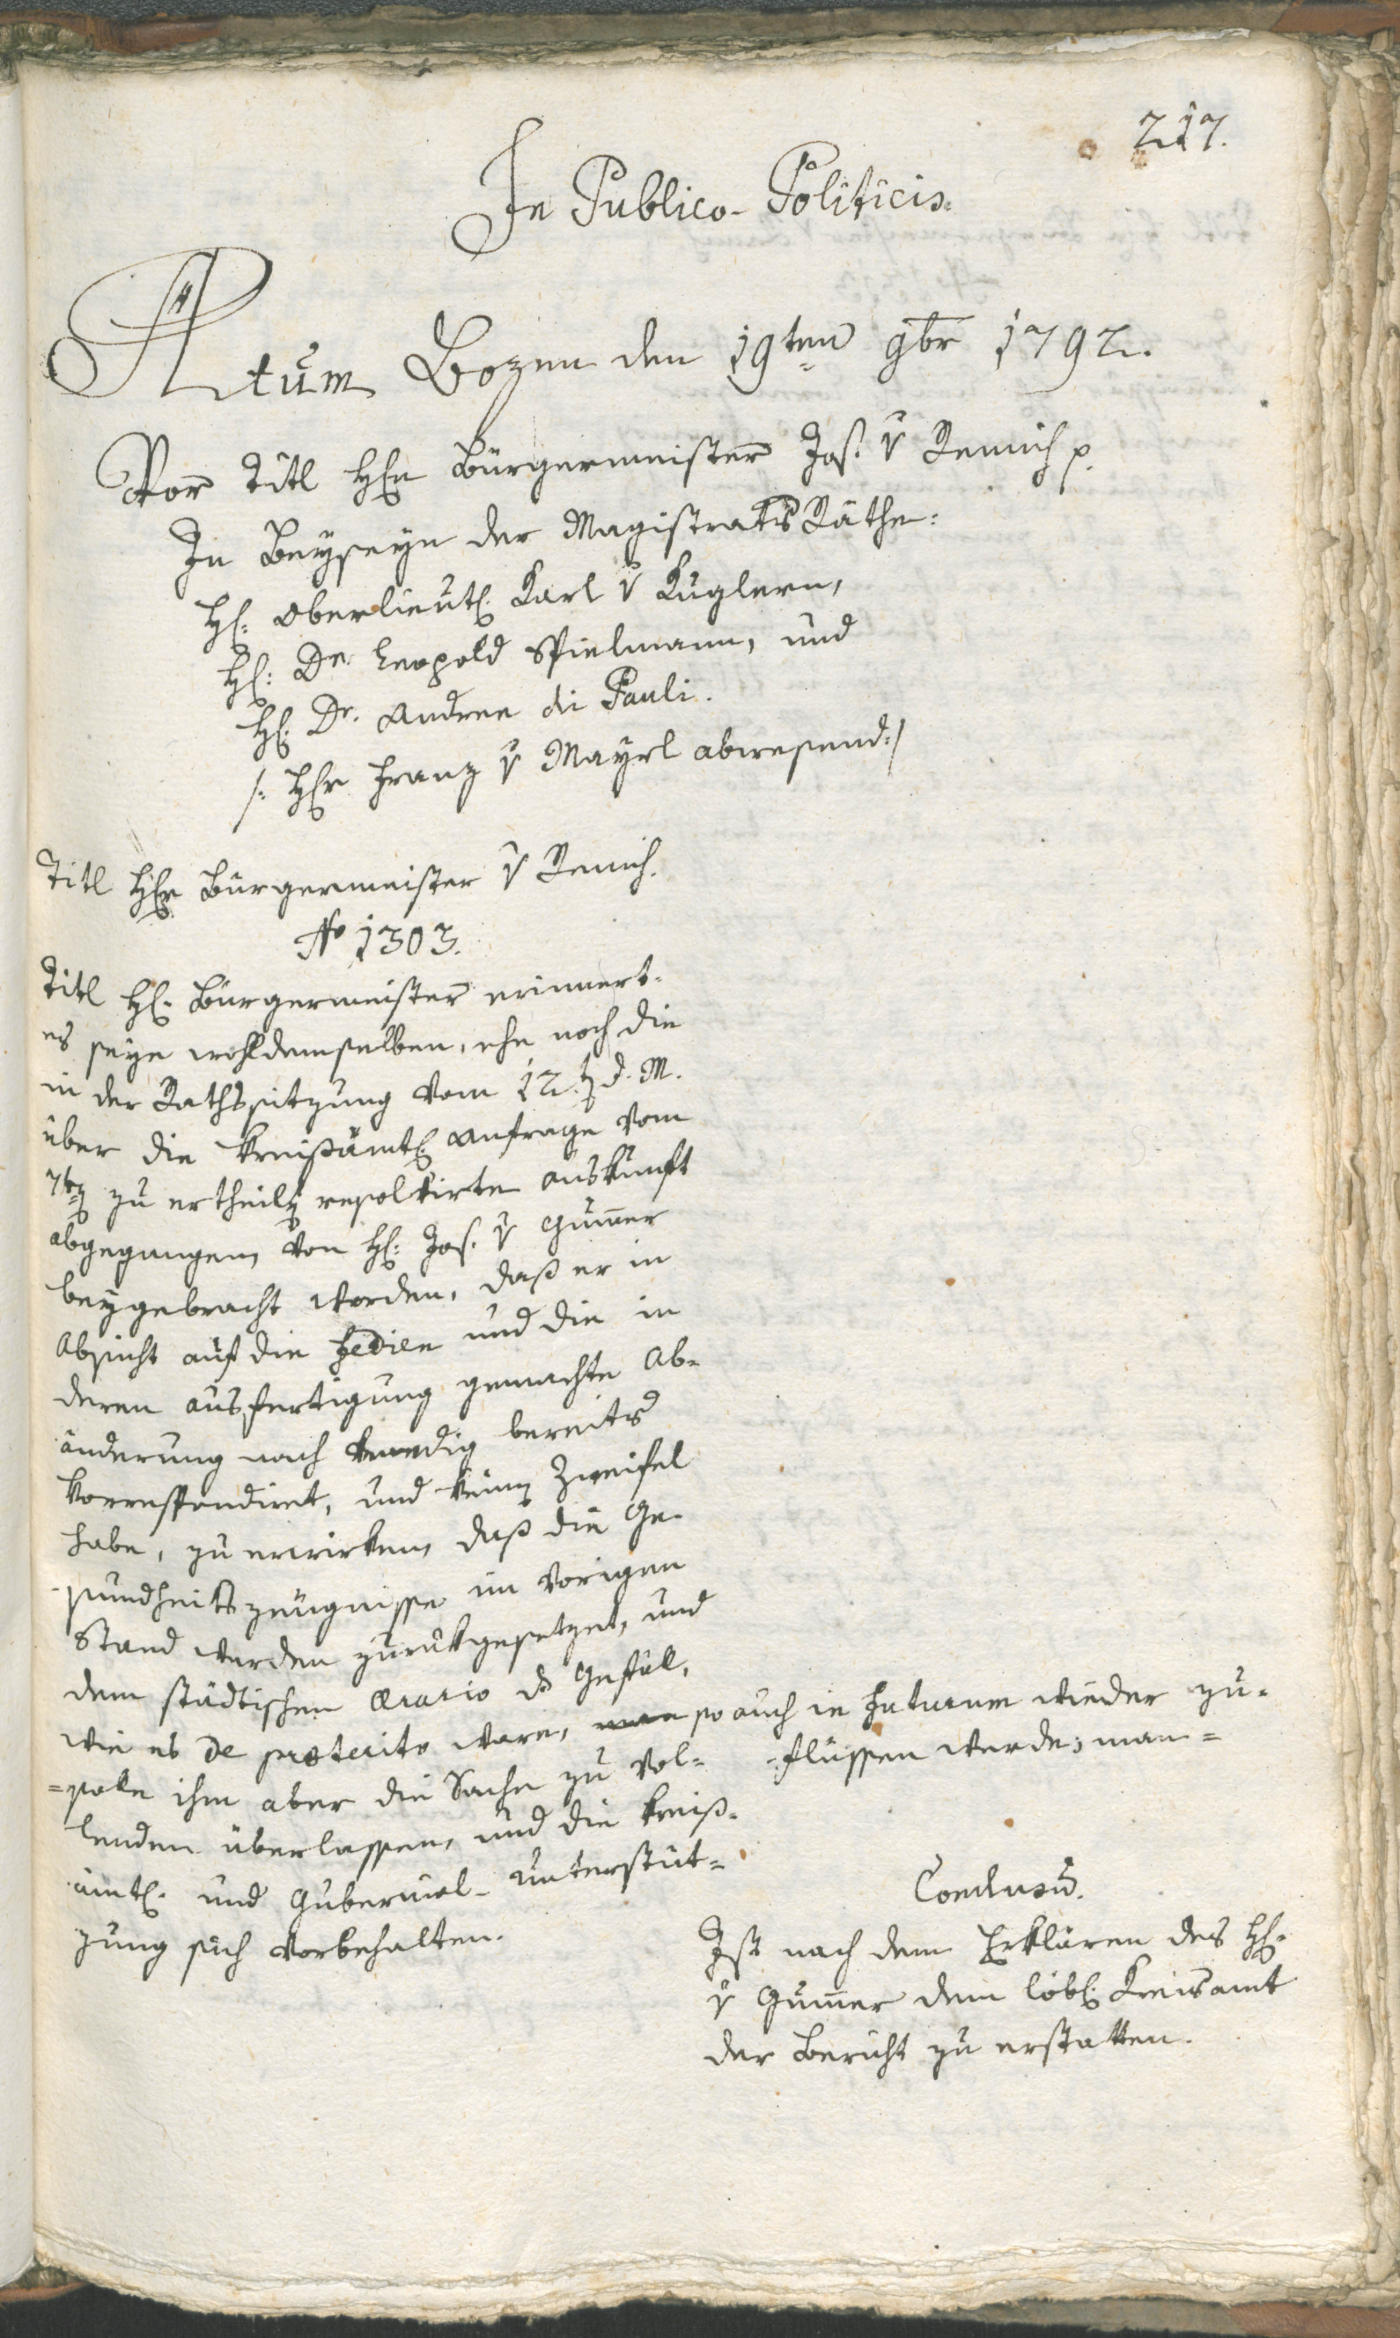 217.
In Publico-Politicis.
Actum Bozen den 19ten 9br 1792.
Vor Titl Hℓn Bürgermeister Jos. v Remich p.
In Beyseyn der Magistrats Räthe:
Hℓ: Oberlieutℓ. Karl v Kuglern,
Hℓ: Dr. Leopold Spielmann, und
Hℓ: Dr. Andree di Pauli.
/: Hℓr Franz v Mayrl abwesend :/
Titl Hℓr Bürgermeister v Remich.
No 1303.
Titl Hℓ. Bürgermeister erinnert-
es seye wohldemselben, ehe noch die
in der Rathssitzung vom 12.t d. M.
über die kreisämtℓ. Anfrage vom
7tℓ zu ertheilℓ resolvirte Auskunft
abgegangen, von Hℓ: Jos. v Gum̃er
beygebracht worden, daß er in
Absicht auf die Fedien und die in
deren Ausfertigung gemachte Ab-
änderung nach Venedig bereits
korrespondiret, und keinℓ Zweifel
habe, zu erwirken, daß die Ge-
sundheitszeugnisse im vorigen
Stand werden zurückgesetzet, und
dem städtischen Ærario ds Gefäll,
wie es de præterito ware, so auch in Futurum wieder zu-
flüssen werde; man=
=solle ihm aber die Sache zu vol-
lenden überlassen, und die kreis-
ämtℓ. und Gubernial-Unterstüt-
zung sich vorbehalten.
Conclusũ.
Ist nach dem Erklären des Hℓ.
v Gum̃er dem löbℓ. Kreisamt
der Bericht zu erstatten.